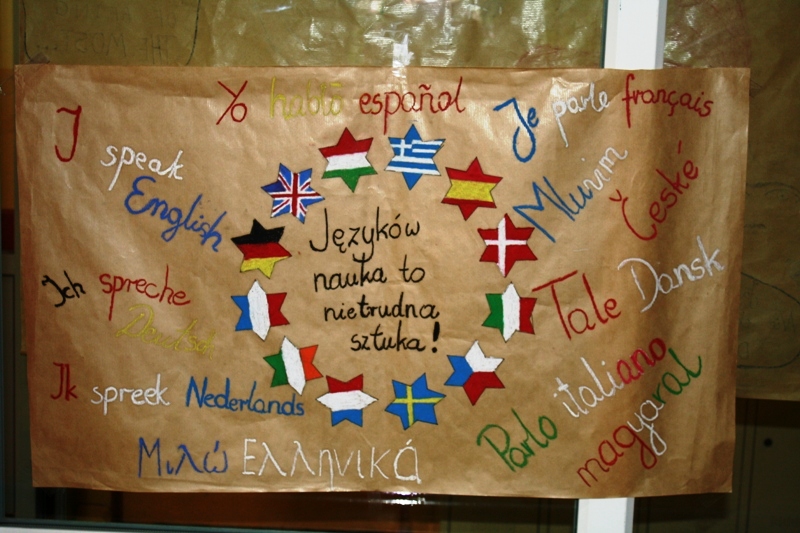 Yo hablo español
I speak English
Je parle français
Mluvim České
Języków
nauka to
nietrudna
sztuka!
Ich spreche
Deutsch
Tale Dansk
Ik spreek Nederlands
Parlo italiano
magyaral
Μιλώ Ελληνικά